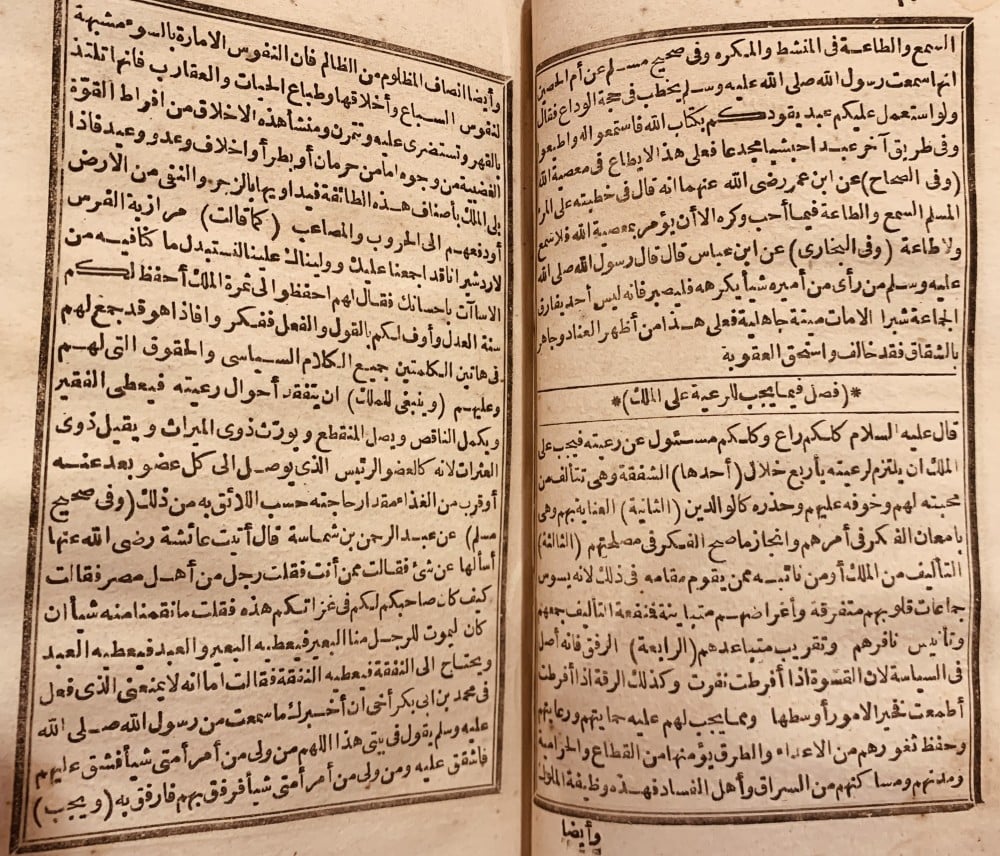 السمع والطاعة فى المنشط والمكره وفى صحيح مسلم عن أم الحصين
انها سمعت رسول الله صلى الله عليه وسلم يخطب فى حجة الوداع فقال
ولو استعمل عليكم عبد يقودكم بكتاب الله فاسمعوا له واطيعوا
وفى طريق آخر عبدا حبشيا مجدعا فعلى هذا لايطاع فى معصية الله
(وفى الصحاح) عن ابن عمر رضى الله عنهما انه قال فى خطبته على المرء
المسلم السمع والطاعة فيما أحب وكره الا أن يؤمر بمعصية الله فلا سمع
ولا طاعة (وفى البخارى) عن ابن عباس قال قال رسول الله صلى الله
عليه وسلم من رأى من أميره شيأ يكرهه فليصبر فانه ليس أحد يفارق
الجماعة شبرا الا مات ميتة جاهلية فعلى هذا من أظهر العناد وجاهر
بالشقاق فقد خالف واستحق العقوبة
*(فصل فيما يجب للرعية على الملك)*
قال عليه السلام كلكم راع وكلكم مسئول عن رعيته فيجب على
الملك ان يلتزم لرعيته بأربع خلال (أحدها) الشفقة وهى تتألف من
محبته لهم وخوفه عليهم وحذره كالوالدين (الثانية) العناية بهم وهى
بامعان الفكر فى أمرهم وانجاز ما صح الفكر فى مصلحتهم (الثالثة)
التأليف من الملك أو من نائبه ممن يقوم مقامه فى ذلك لانه يسوس
جماعات قلوبهم متفرقة وأغراضهم متباينة فمنفعة التأليف جمعهم
وتأنيس نافرهم وتقريب متباعدهم (الرابعة) الرفق فانه أصل
فى السياسة لان القسوة اذا أفرطت نفرت وكذلك الرقة اذا أفرطت
أطمعت فخير الامور أوسطها ومما يجب لهم عليه حمايتهم ورعايتهم
وحفظ ثغورهم من الاعداء والطرق يؤمنها من القطاع والحرامية
ومدنهم ومساكنهم من السراق وأهل الفساد فهذه وظيفة الملوك
وأيضا
وأيضا انصاف المظلوم من الظالم فان النفوس الامارة بالسوء مشبهة
لنفوس السباع وأخلاقها وطباع الحيات والعقارب فانها تلتذ
بالقهر وتستضرى عليه وتتمرن ومنشأ هذه الاخلاق من افراط القوة
الغضبية من وجوه اما من حرمان أو بطر أو اخلاف وعد ووعيد فاذا
بلى الملك بأصناف هذه الطائفة فيداويها بالزجر والنفى من الارض
أو دفعهم الى الحروب والمصاعب (كما قالت) مرازبة الفرس
لاردشير انا قد اجمعنا عليك ووليناك علينا لنستبدل ما كنا فيه من
الاساآت باحسانك فقال لهم احفظوا لى ثمرة الملك أحفظ لكم
سنة العدل وأوف لكم بالقول والفعل ففكروا فاذا هو قد جمع لهم
فى هاتين الكلمتين جميع الكلام السياسى والحقوق التى لهم
وعليهم (وينبغى للملك) ان يتفقد أحوال رعيته فيعطى الفقير
ويكمل الناقص ويصل المنقطع ويورث ذوى الميراث ويقيل ذوى
العثرات لانه كالعضو الرئيس الذى يوصل الى كل عضو بعد عنه
أو قرب من الغذاء مقدار حاجته حسب اللائق به من ذلك (وفى صحيح
مسلم) عن عبد الرحمن بن شماسة قال أتيت عائشة رضى الله عنها
أسألها عن شئ فقالت ممن أنت فقلت رجل من أهل مصر فقالت
كيف كان صاحبكم لكم فى غزاتكم هذه فقلت ما نقمنا منه شيأ ان
كان ليموت للرجل منا البعير فيعطيه البعير والعبد فيعطيه العبد
ويحتاج الى النفقة فيعطيه النفقة فقالت اما انه لا يمنعنى الذى فعل
فى محمد بن ابى بكر أخى أن أخبرك ما سمعت من رسول الله صلى الله
عليه وسلم يقول فى بيتى هذا اللهم من ولى من أمر أمتى شيأ فشق عليهم
فاشقق عليه ومن ولى من أمر أمتى شيأ فرفق بهم فارفق به (ويجب)